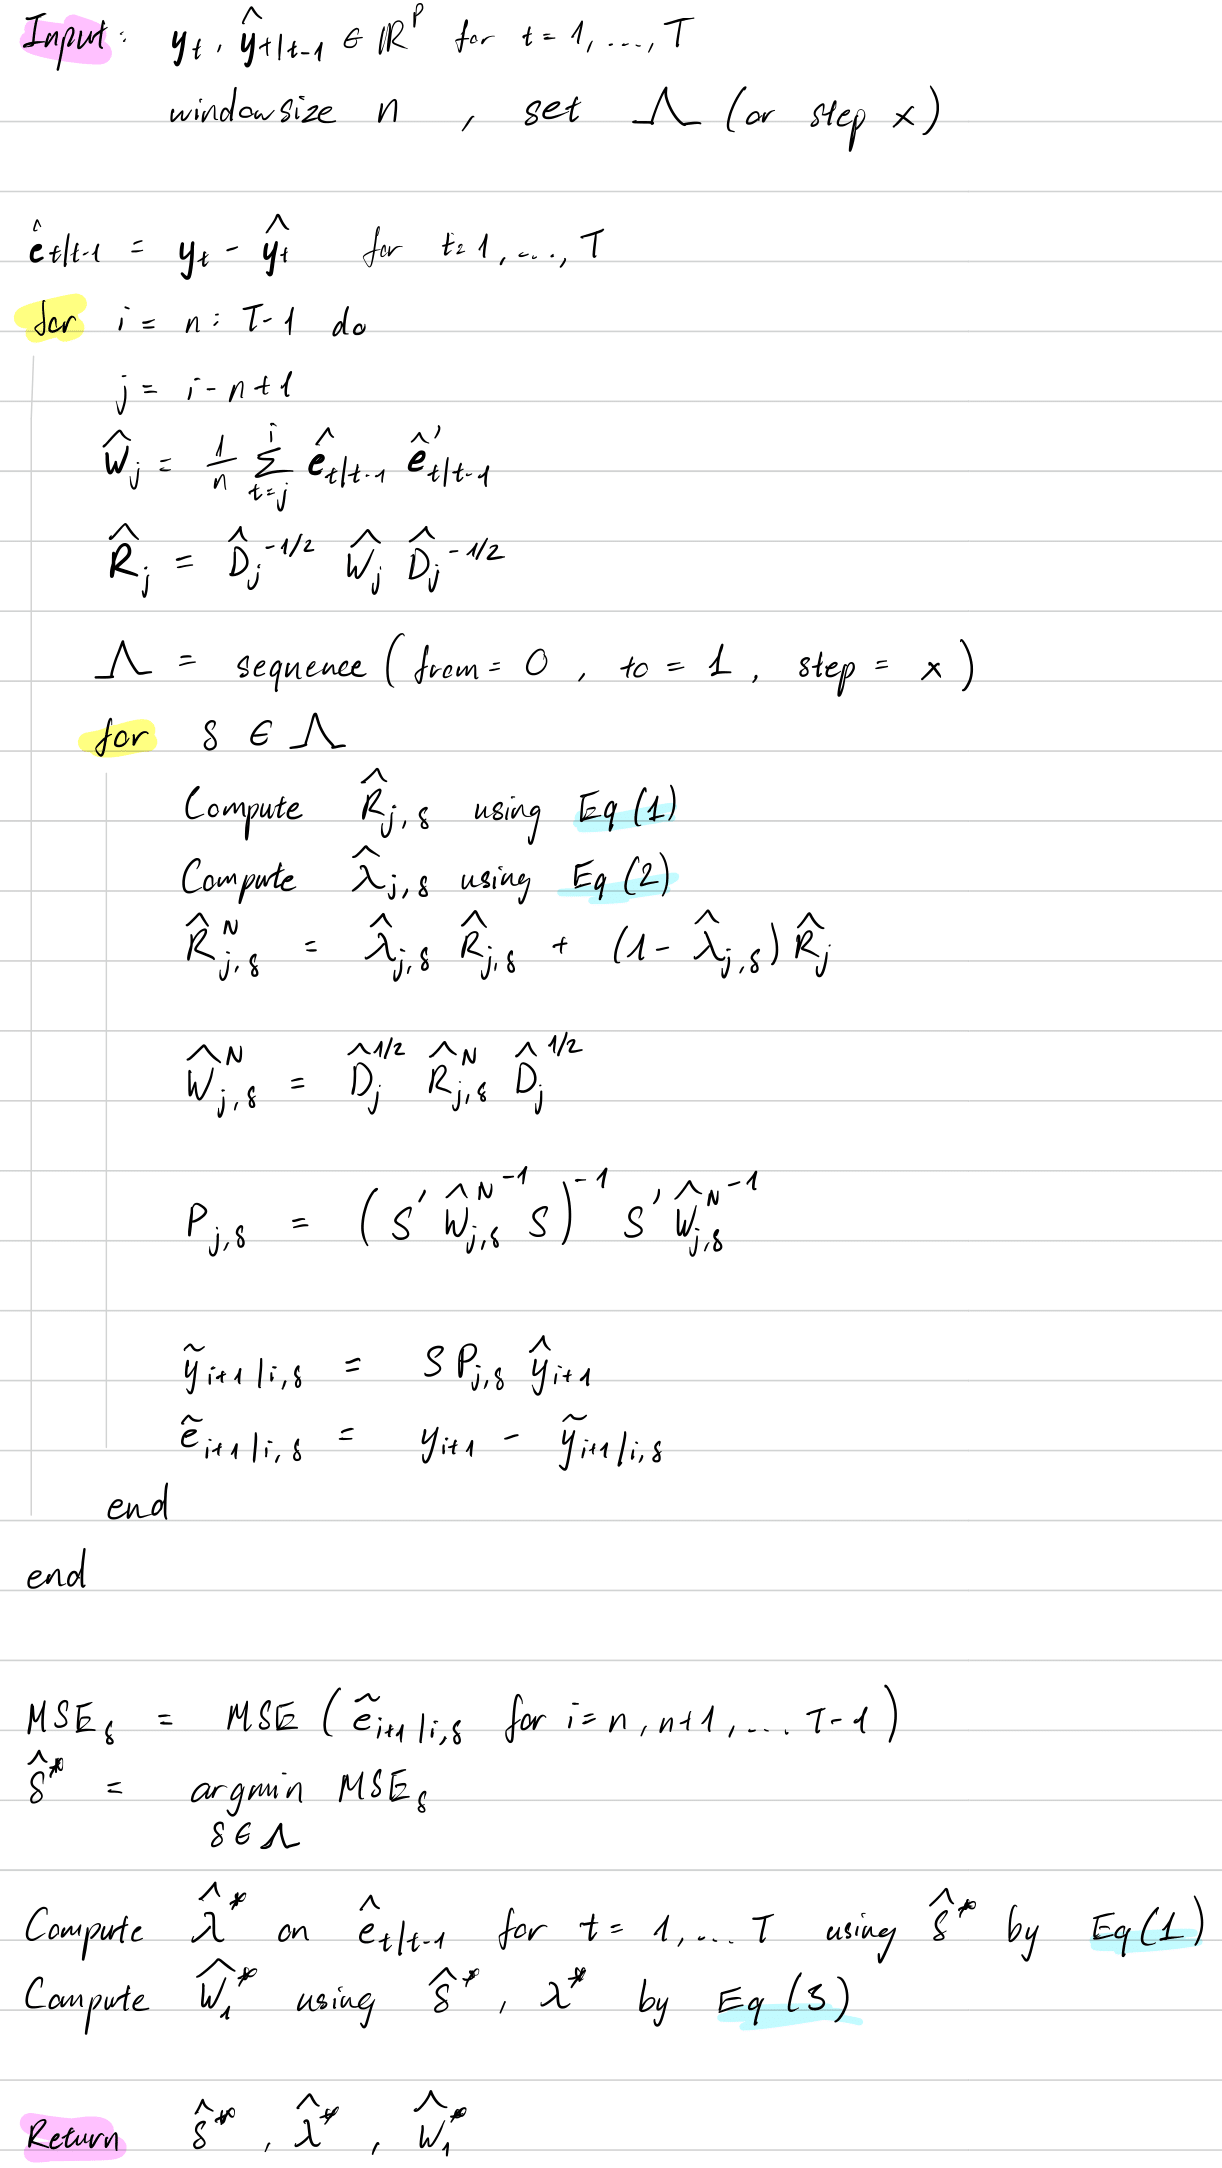 Input: y_t, ŷ_{t|t-1} ∈ ℝ^p for t = 1, ..., T
windowsize n , set Λ (or step x)
ê_{t|t-1} = y_t - ŷ_t for t = 1, ..., T
for i = n : T-1 do
j = i - n + 1
Ŵ_j = 1/n Σ_{t=j}^{i} ê_{t|t-1} ê'_{t|t-1}
R̂_j = D̂_j^{-1/2} Ŵ_j D̂_j^{-1/2}
Λ = sequence (from = 0 , to = 1 , step = x)
for δ ∈ Λ
Compute R̂_{j,δ} using Eq (1)
Compute λ̂_{j,δ} using Eq (2)
R̂^N_{j,δ} = λ̂_{j,δ} R̂_{j,δ} + (1 - λ̂_{j,δ}) R̂_j
Ŵ^N_{j,δ} = D̂_j^{1/2} R̂^N_{j,δ} D̂_j^{1/2}
P_{j,δ} = (S' Ŵ^{N -1}_{j,δ} S)^{-1} S' Ŵ^{N -1}_{j,δ}
ỹ_{i+1|i,δ} = S P_{j,δ} ŷ_{i+1}
ẽ_{i+1|i,δ} = y_{i+1} - ỹ_{i+1|i,δ}
end
end
MSE_δ = MSE (ẽ_{i+1|i,δ} for i = n, n+1, ... T-1)
δ̂* = argmin MSE_δ
δ ∈ Λ
Compute λ̂* on ê_{t|t-1} for t = 1, ... T using δ̂* by Eq (1)
Compute Ŵ_1* using δ̂*, λ* by Eq (3)
Return δ̂* , λ̂* , Ŵ_1*